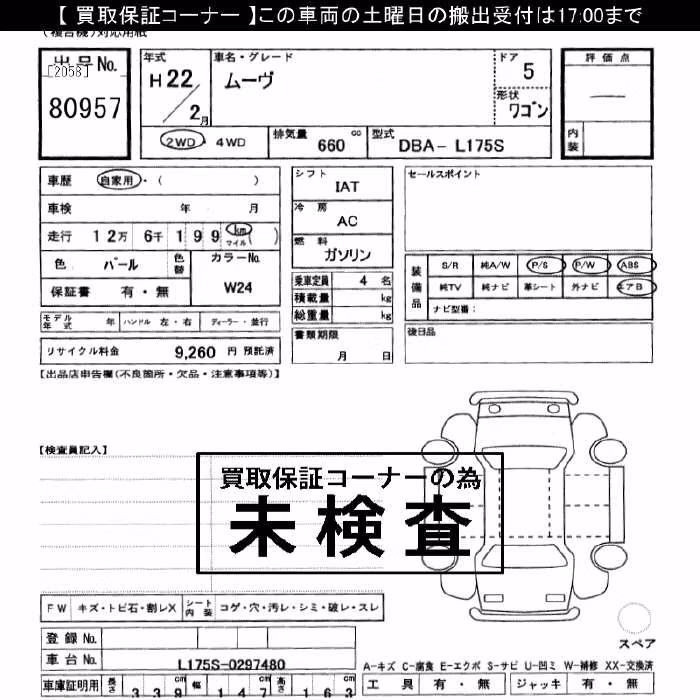 【 買取保証コーナー 】この車両の土曜日の搬出受付は17:00まで
(複合機)対応用紙
出品No.
[2058]
80957
年式
H22
2月
車名・グレード
ムーヴ
ドア
5
形状
ワゴン
評価点
内装
2WD・4WD
排気量 660 cc
型式 DBA- L175S
車歴 自家用・( )
車検 年 月
走行 12万 6千 199 km マイル ( )
色 パール
色替
カラーNo.
W24
保証書 有・無
モデル年式 年
ハンドル 左・右
ディーラー・並行
リサイクル料金 9,260 円 預託済
シフト
IAT
冷房
AC
燃料
ガソリン
乗車定員 4 名
積載量 kg
総重量 kg
書類期限
月 日
セールスポイント
装備品
S/R 純A/W P/S P/W ABS
純TV 純ナビ 革シート 外ナビ エアB
ナビ型番:
後日品
【出品店申告欄(不良箇所・欠品・注意事項等)】
【検査員記入】
買取保証コーナーの為
未検査
FW キズ・トビ石・割レX
シート内装 コゲ・穴・汚レ・シミ・破レ・スレ
登録No.
車台No. L175S-0297480
車庫証明用 長さ 339cm 幅 147cm 高さ 163cm
スペア
A-キズ C-腐食 E-エクボ S-サビ U-凹ミ W-補修 XX-交換済
工具 有・無 ジャッキ 有・無